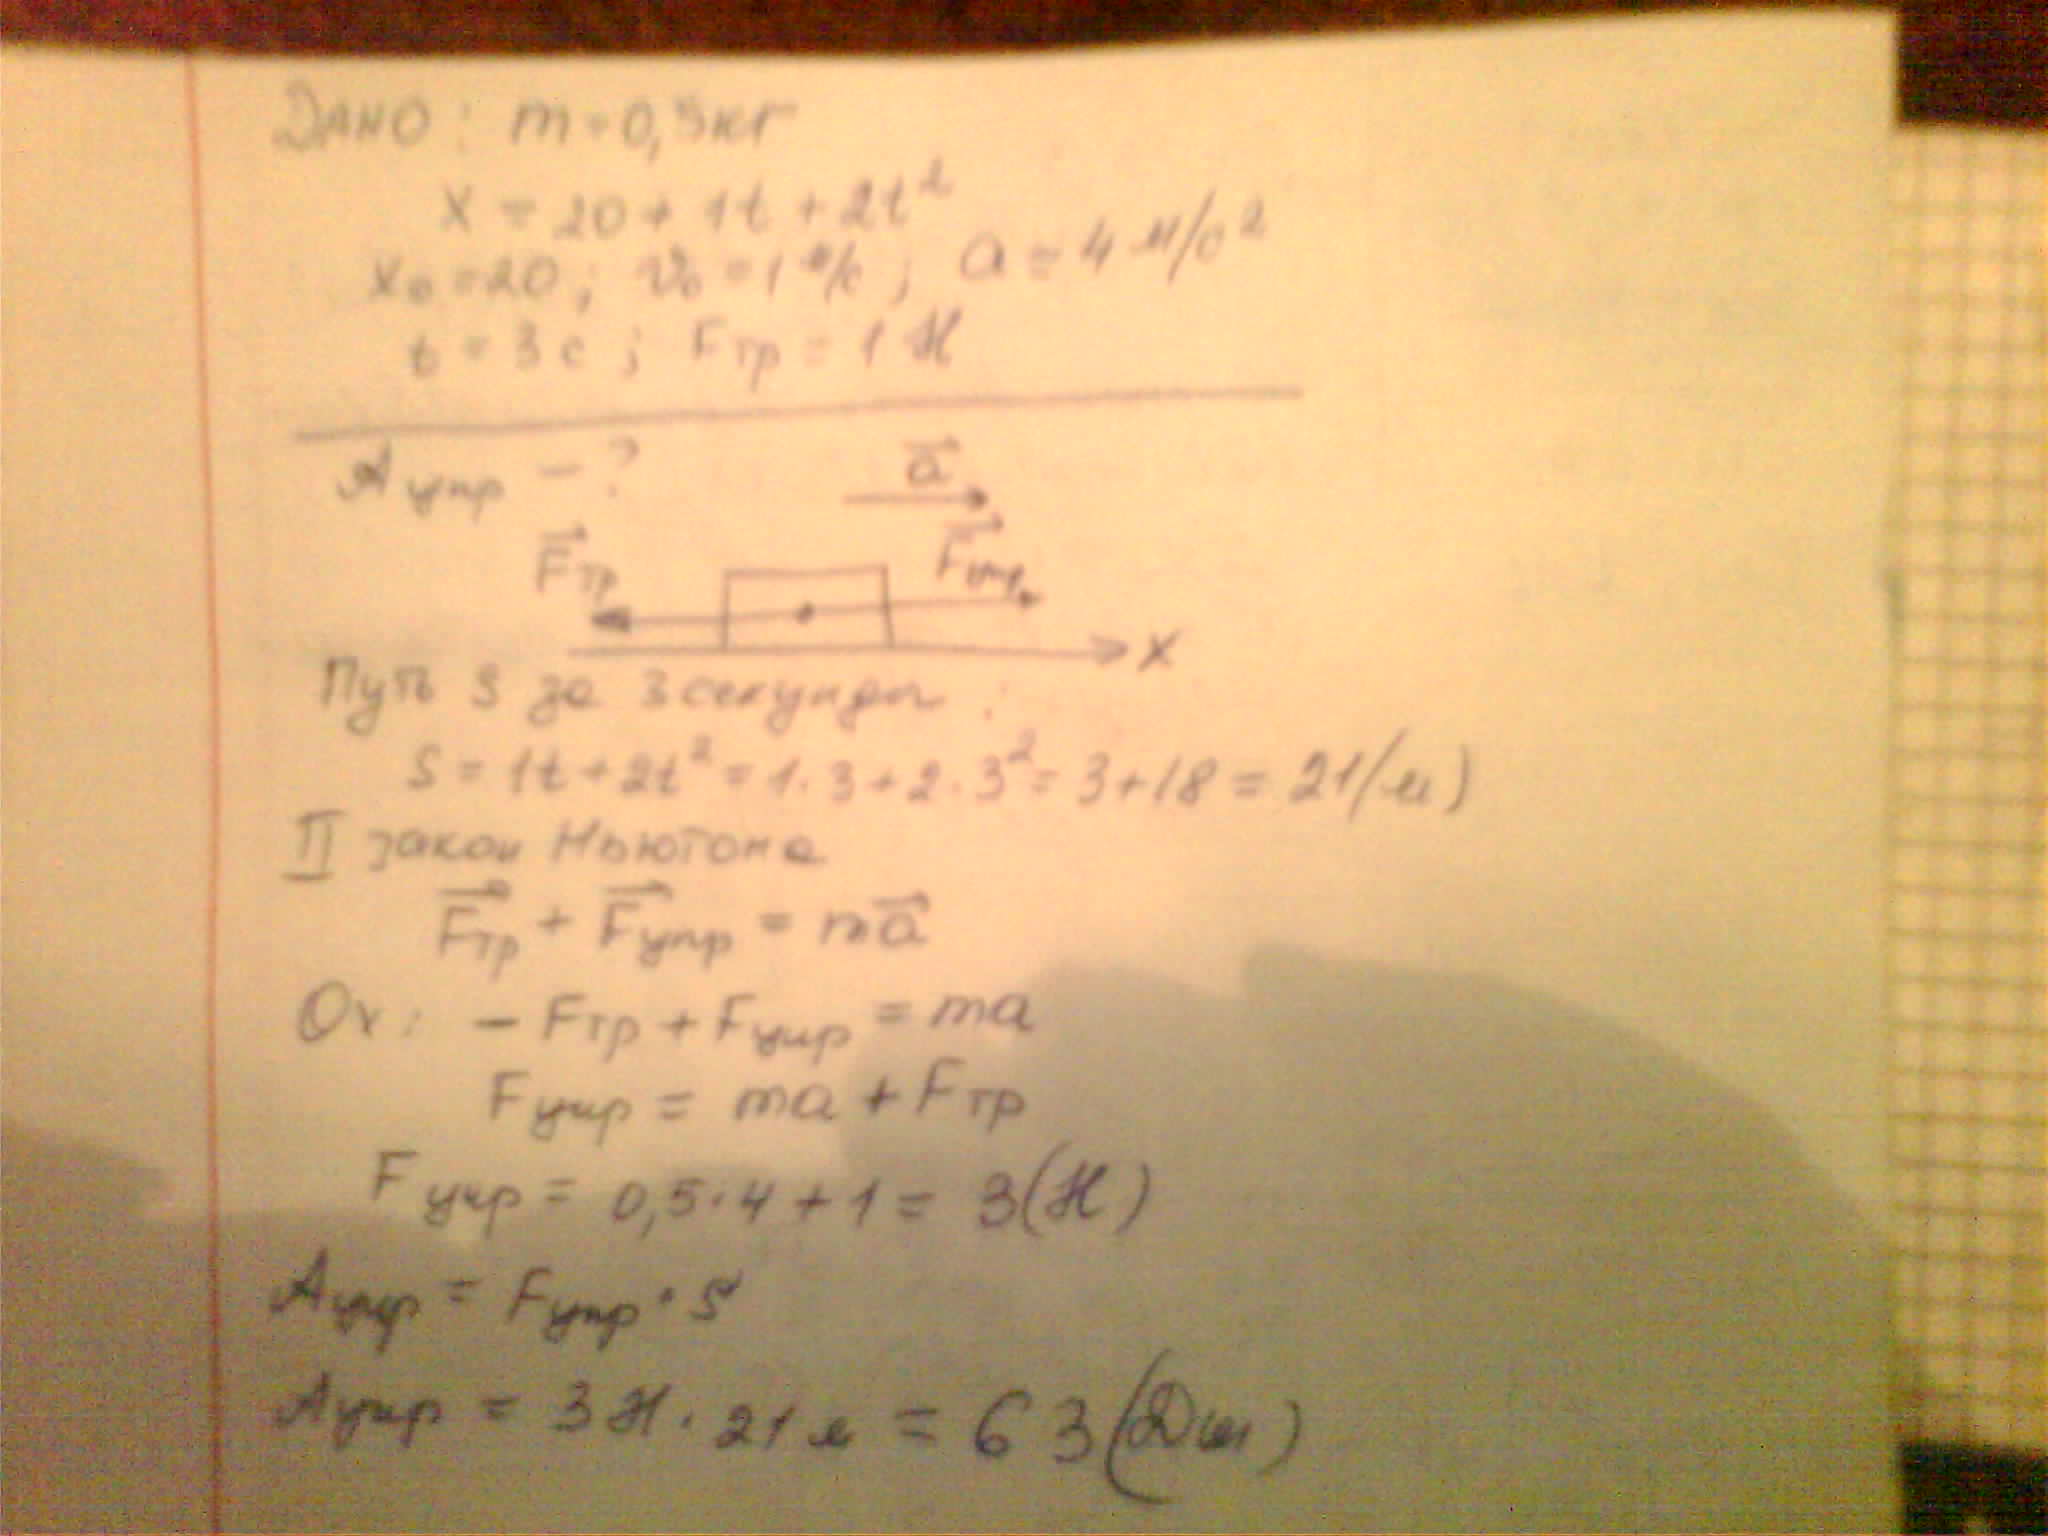 Дано: m = 0,5кг
x = 20 + 1t + 2t²
x₀ = 20; v₀ = 1 м/с; a = 4 м/с²
t = 3с; Fтр = 1 Н
Aупр - ?
a
Fтр
Fупр
x
Путь S за 3 секунды:
S = 1t + 2t² = 1·3 + 2·3² = 3 + 18 = 21(м)
II закон Ньютона
Fтр + Fупр = ma
Ox: - Fтр + Fупр = ma
Fупр = ma + Fтр
Fупр = 0,5·4 + 1 = 3(Н)
Aупр = Fупр · S
Aупр = 3Н · 21м = 63(Дж)